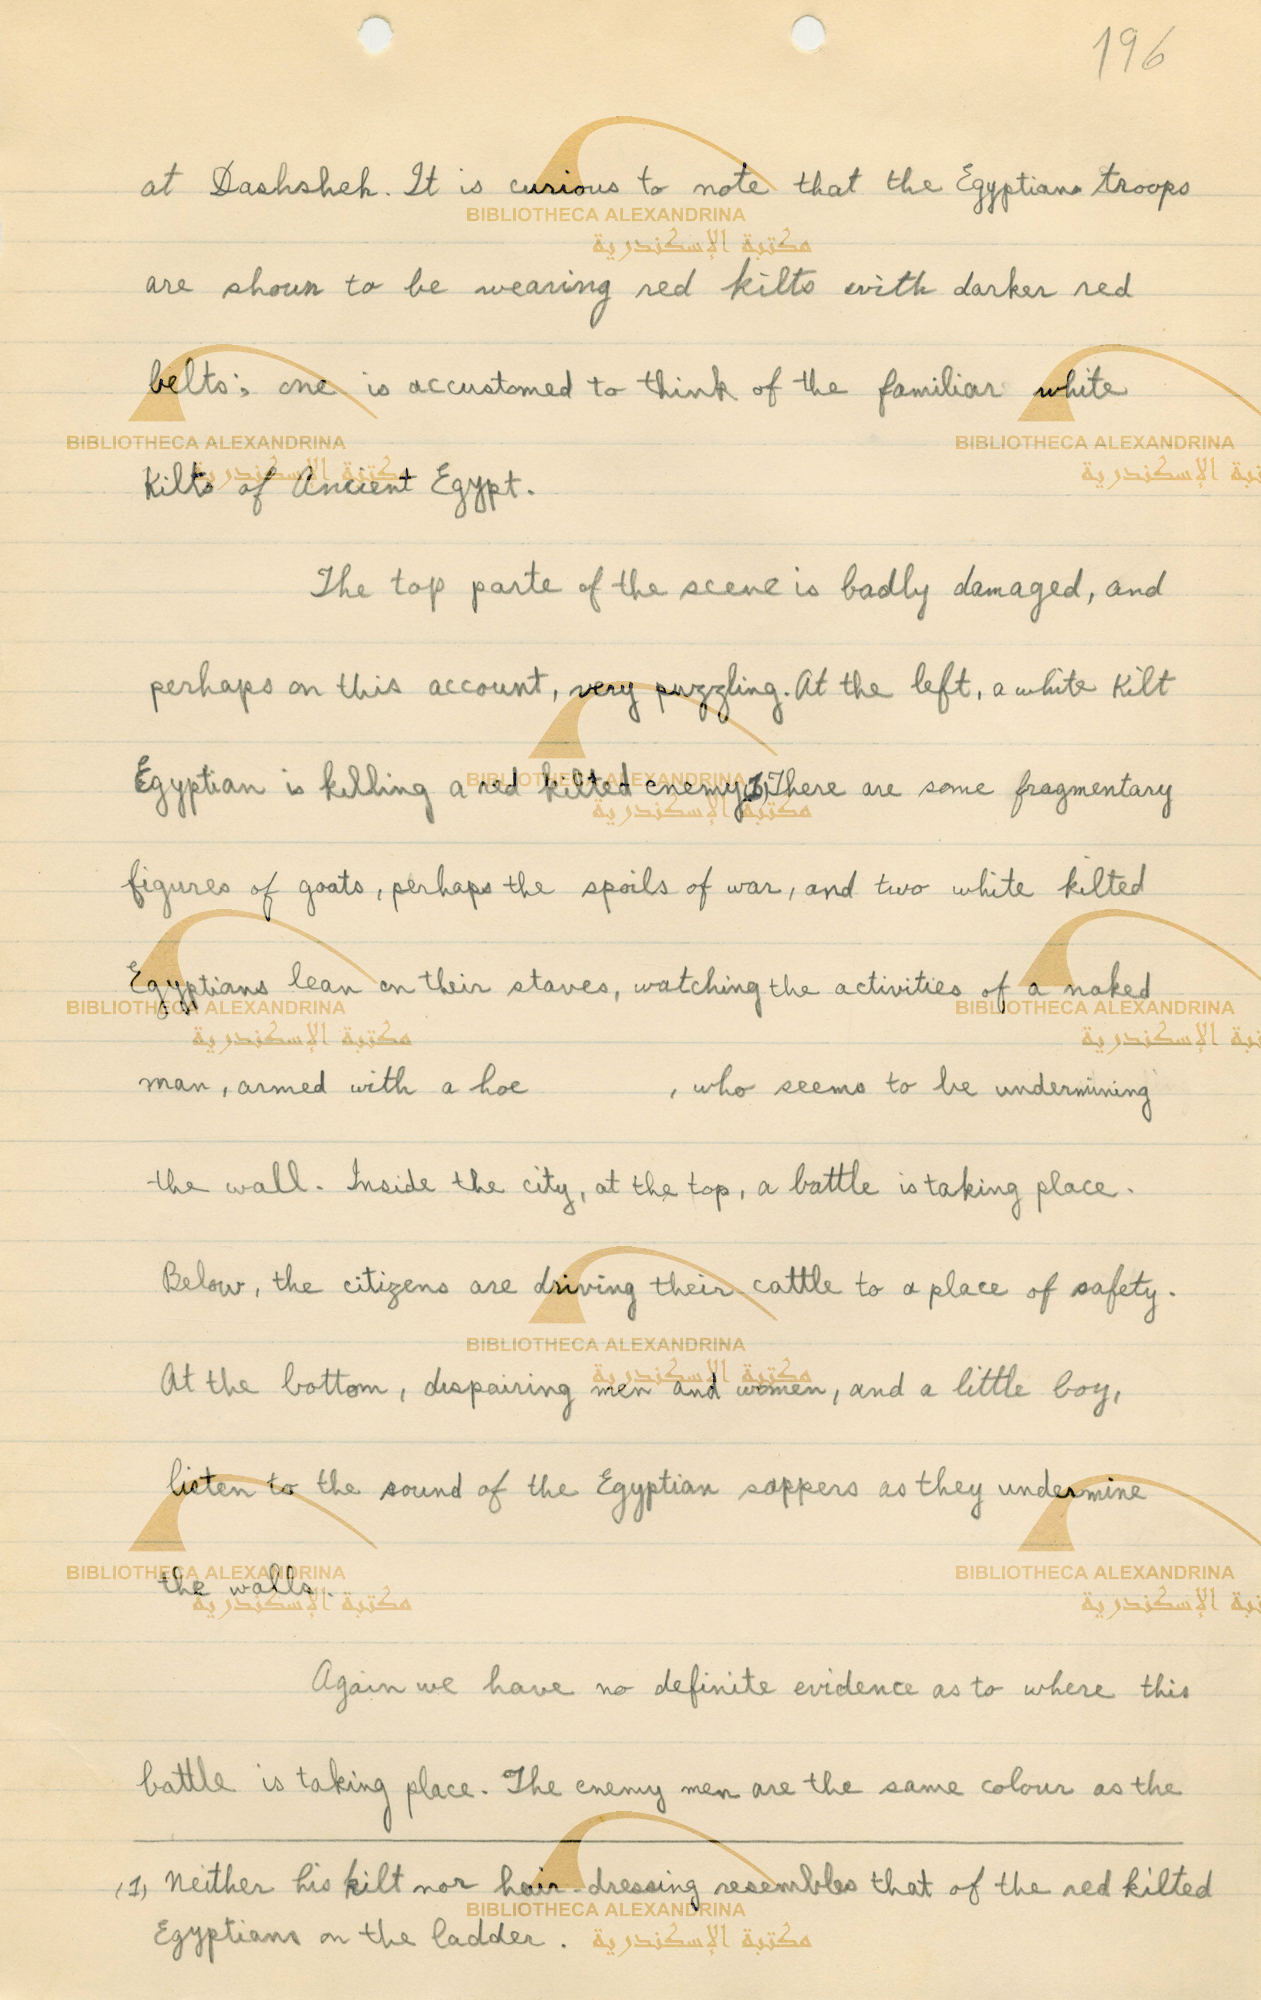 196
at Dashsheh. It is curious to note that the Egyptians troops
are shown to be wearing red kilts with darker red
belts; one is accustomed to think of the familiar white
Kilts of Ancient Egypt.
The top parte of the scene is badly damaged, and
perhaps on this account, very puzzling. At the left, a white Kilt
Egyptian is killing a red kilted enemy(1) There are some fragmentary
figures of goats, perhaps the spoils of war, and two white kilted
Egyptians lean on their staves, watching the activities of a naked
man, armed with a hoe , who seems to be undermining
the wall. Inside the city, at the top, a battle is taking place.
Below, the citizens are driving their cattle to a place of safety.
At the bottom, dispairing men and women, and a little boy,
listen to the sound of the Egyptian sappers as they undermine
the walls.
Again we have no definite evidence as to where this
battle is taking place. The enemy men are the same colour as the
(1) Neither his kilt nor hair-dressing resembles that of the red kilted
Egyptians on the ladder.
BIBLIOTHECA ALEXANDRINA
مكتبة الإسكندرية